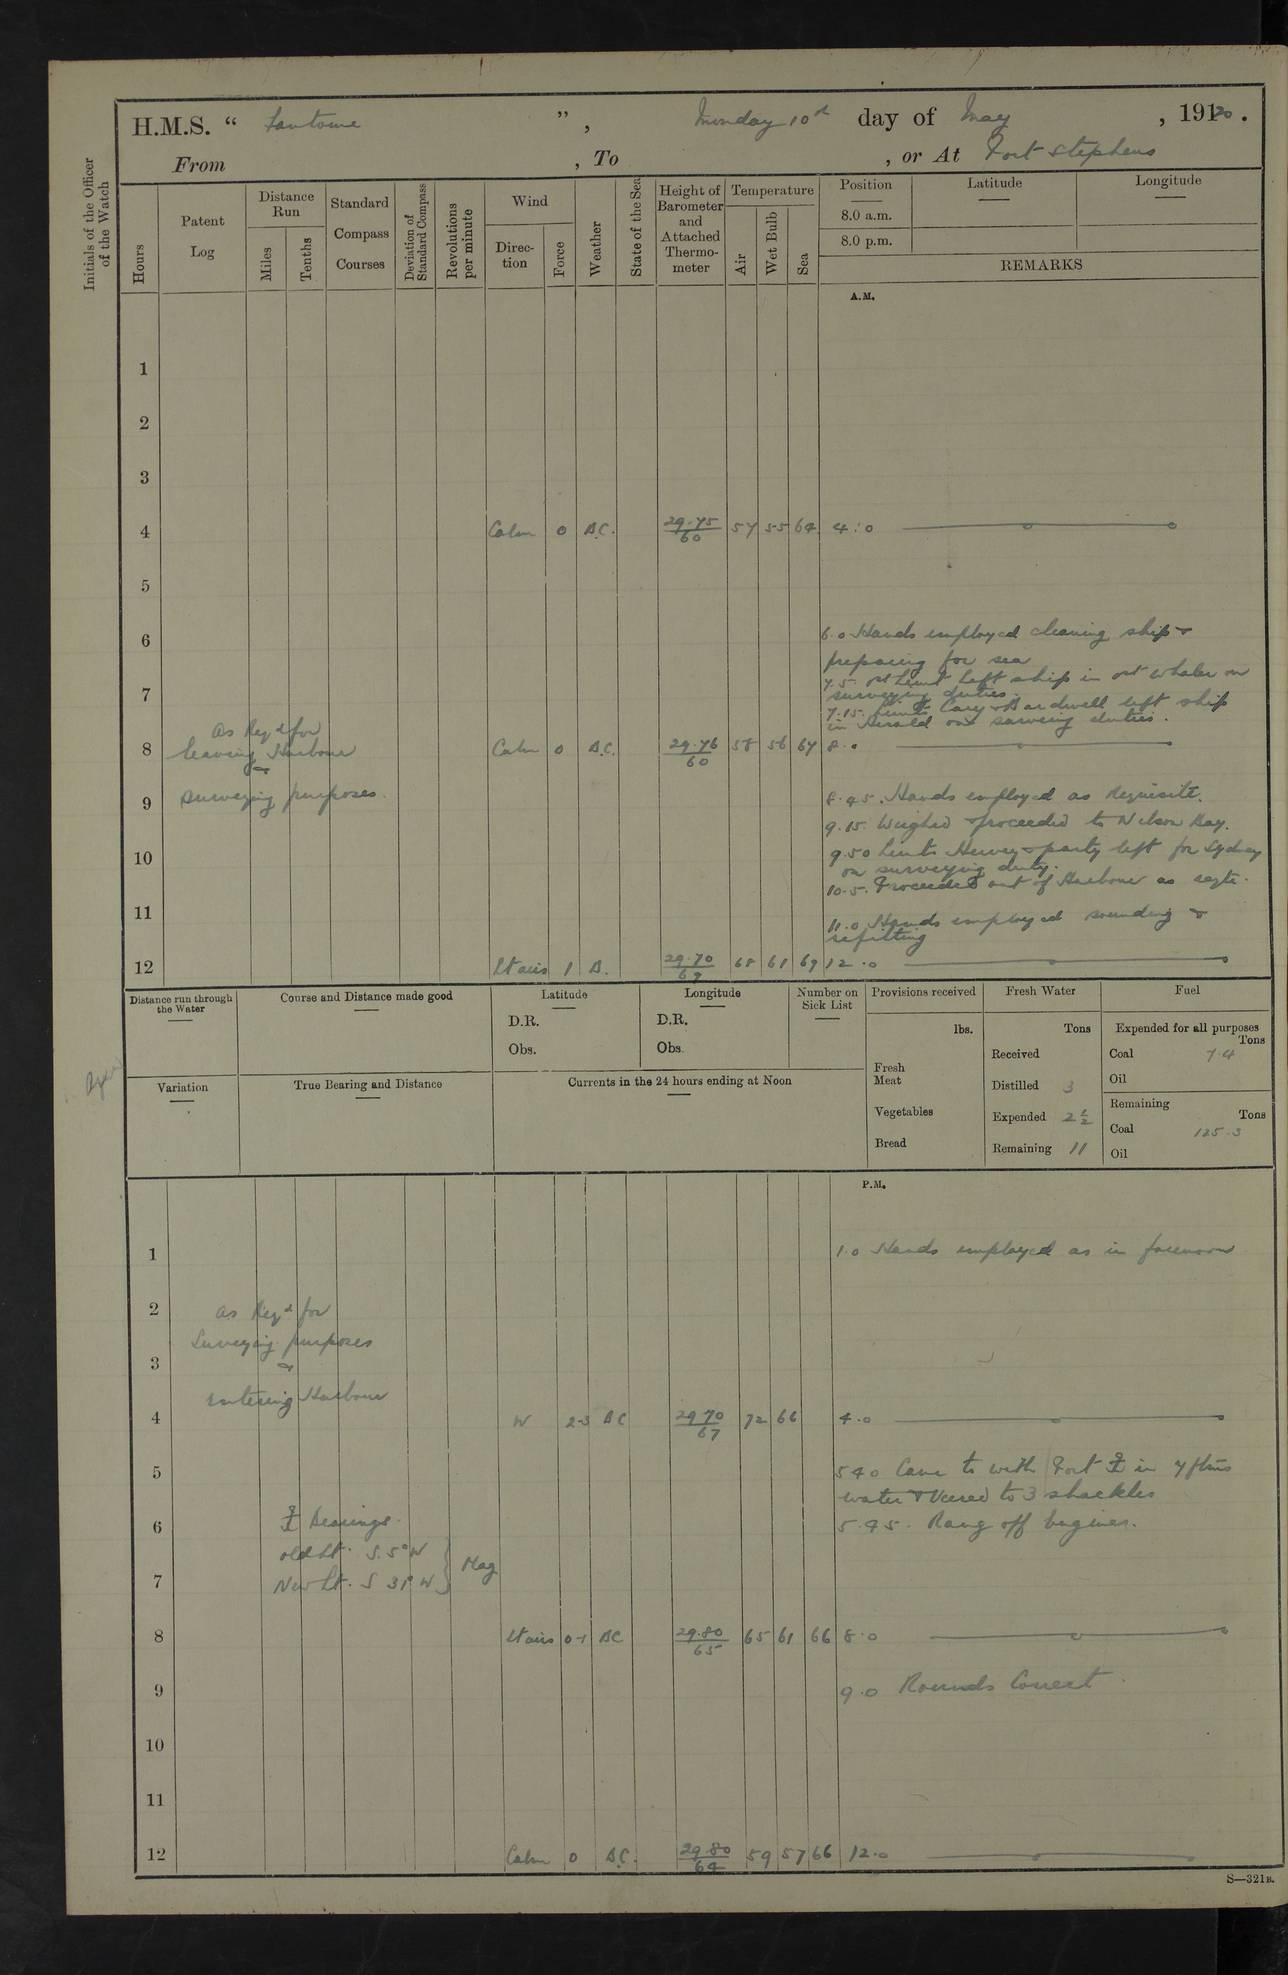 H.M.S. “ Fantome ” , Monday 10th day of May , 1920 .
From , To , or At Port Stephens
Initials of the Officer of the Watch
Hours
Patent Log
Distance Run
Miles
Tenths
Standard Compass Courses
Deviation of Standard Compass
Revolutions per minute
Wind
Direction
Force
Weather
State of the Sea
Height of Barometer and Attached Thermometer
Temperature
Air
Wet Bulb
Sea
Position
8.0 a.m.
8.0 p.m.
Latitude
Longitude
REMARKS
A.M.
1
2
3
4 Calm 0 B.C. 29.75/60 57 55 64 4.0
5
6 6.0 Hands employed cleaning ship &
preparing for sea
7 7.5 Left ship in whaler on
surveying duties.
7.15. Lieuts Cary & Bardwell left ship
in Herald on surveying duties.
As Reqd for
8 leaving Harbour Calm 0 B.C. 29.76/60 58 56 67 8.0
&
surveying purposes.
9 8.45. Hands employed as Requisite.
9.15. Weighed & proceeded to Nelson Bay.
10 9.50 Lieut Hervey & party left for Sydney
on surveying duty.
10.5. Proceeded out of Harbour as reqte.
11 11.0 Hands employed sounding &
refitting
12 Lt airs 1 B. 29.70/69 68 61 69 12.0
Distance run through the Water
Course and Distance made good
Latitude
D.R.
Obs.
Longitude
D.R.
Obs.
Number on Sick List
Provisions received
lbs.
Fresh Meat
Vegetables
Bread
Fresh Water
Tons
Received
Distilled 3
Expended 2 1/2
Remaining 11
Fuel
Expended for all purposes
Tons
Coal 7.4
Oil
Remaining
Tons
Coal 125.3
Oil
Variation
True Bearing and Distance
Currents in the 24 hours ending at Noon
P.M.
1 1.0 Hands employed as in forenoon
2 As Reqd for
Surveying purposes
3 &
entering Harbour
4 W 2-3 BC 29.70/67 72 66 4.0
5 5.40 Came to with Port ⚓ in 7 ftms
water & Veered to 3 shackles
6 ⚓ Bearings. 5.45. Rang off Engines.
old Lt. S.5°W
7 New Lt. S 31°W } Mag
8 Lt airs 0-1 BC 29.80/65 65 61 66 8.0
9 9.0 Rounds Correct.
10
11
12 Calm 0 B.C. 29.80/64 59 57 66 12.0
S—321B.